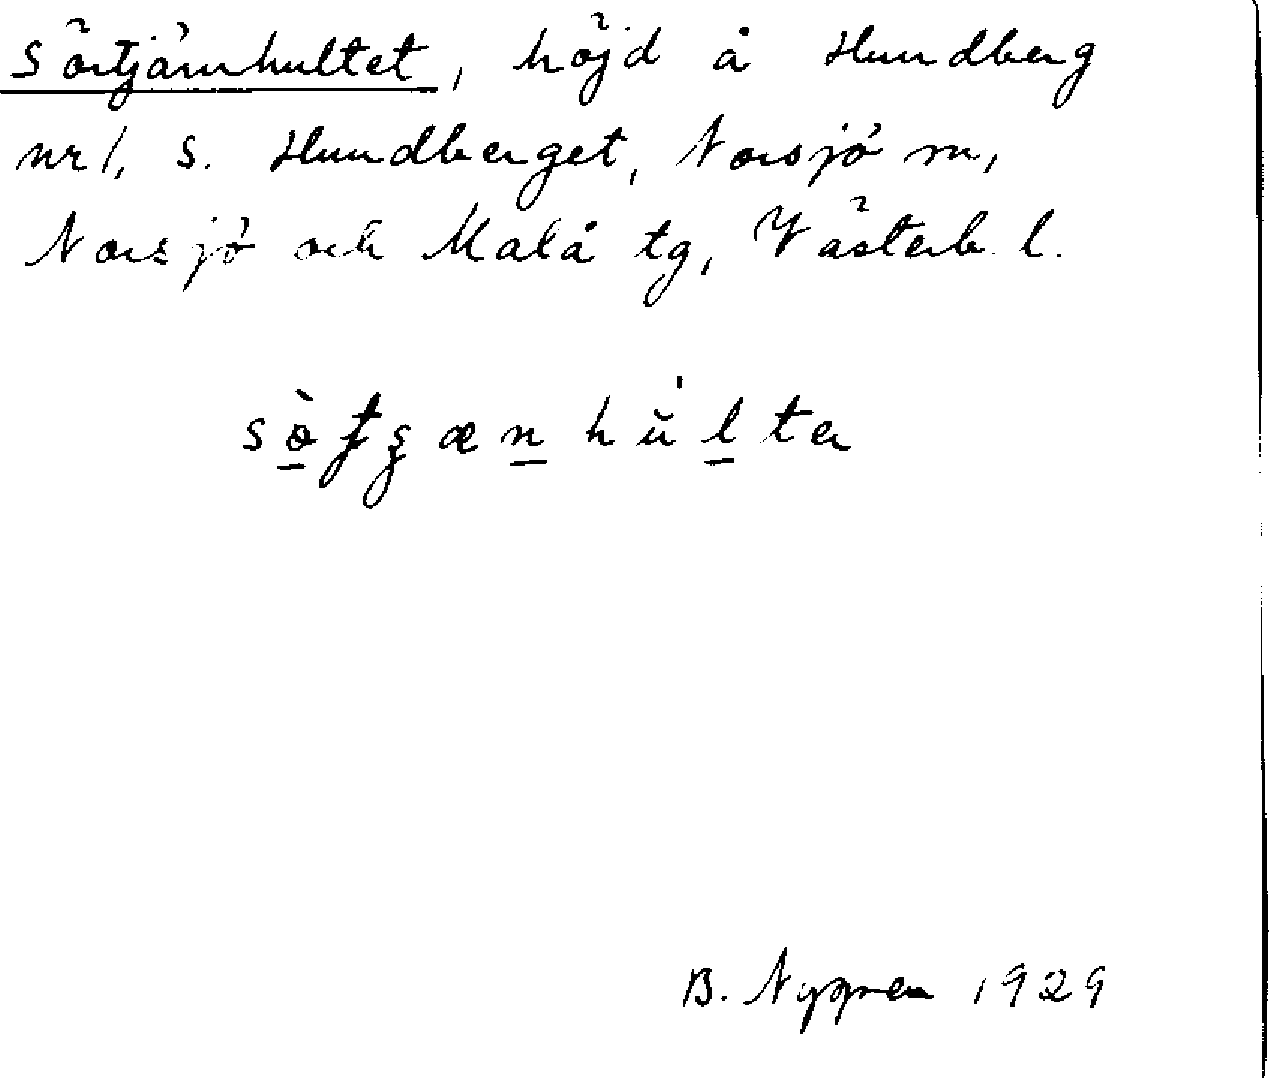 Sörtjärnhultet, höjd å Hundberg
nr 1, S. Hundberget, Norsjö sn,
Norsjö och Malå tg, Västerb. l.
B. Nygren 1929